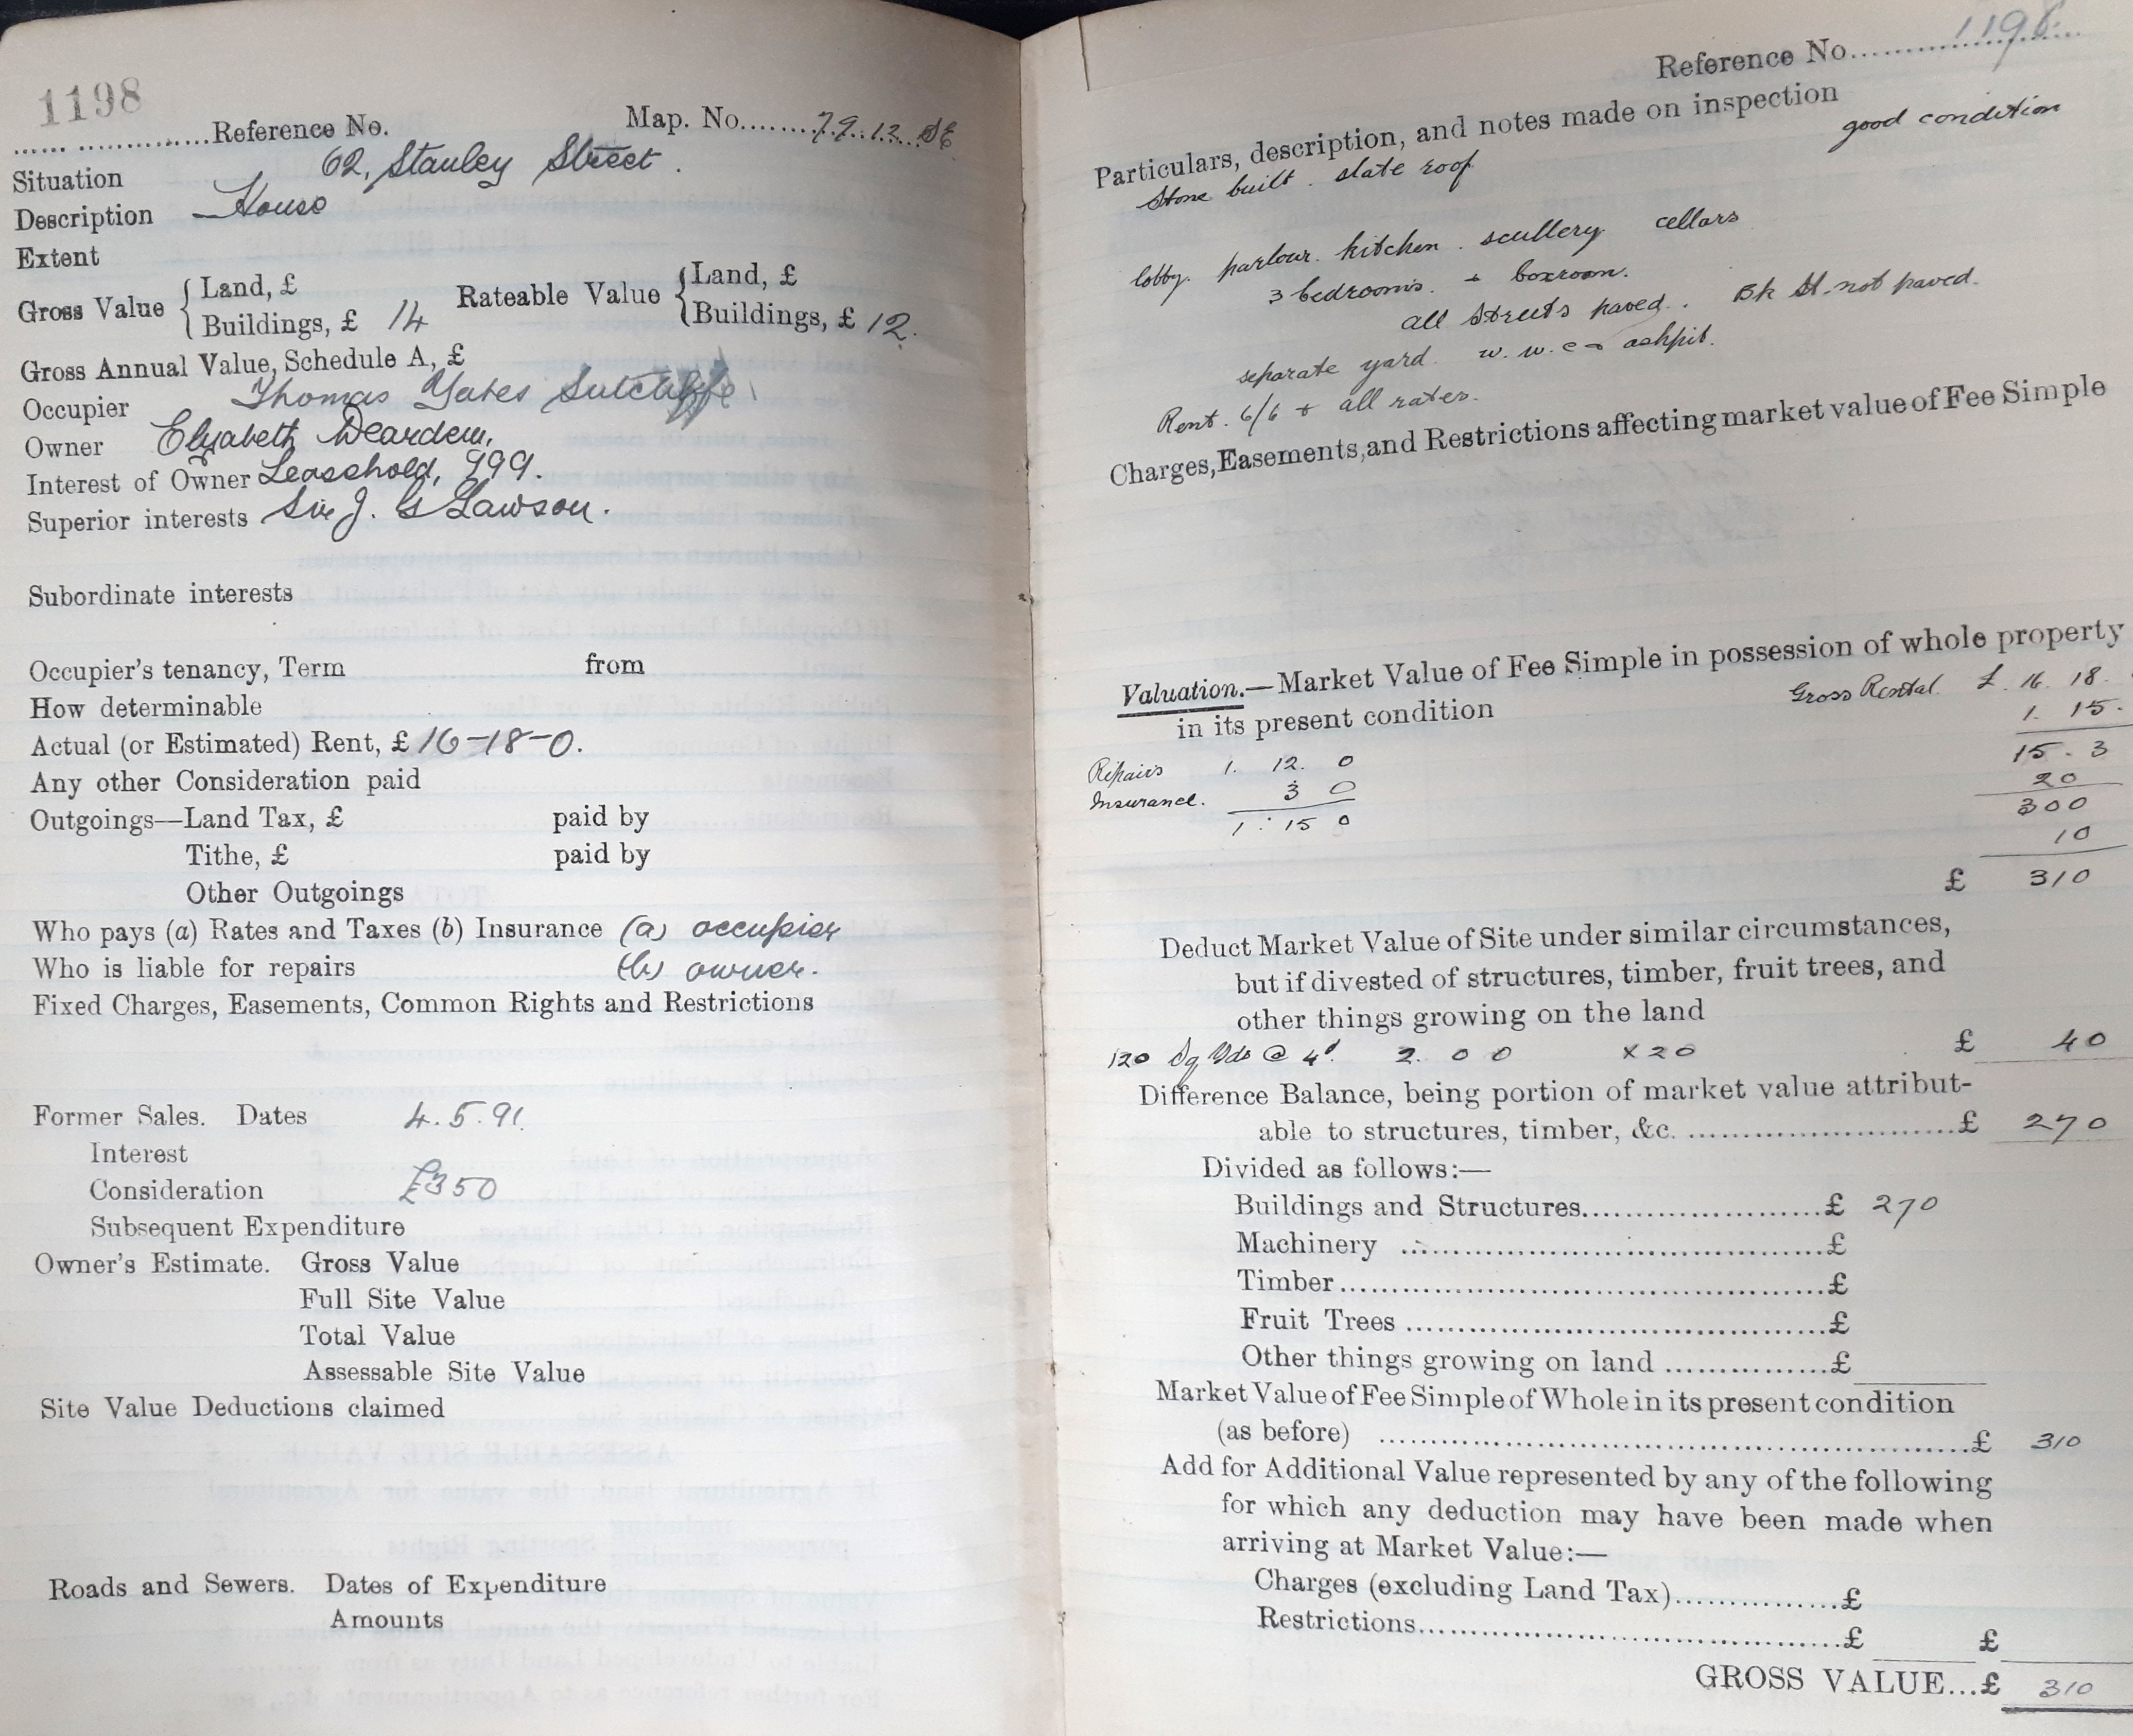 1198
...... ...............Reference No. Map. No........79.12.SE
Situation 62, Stanley Street.
Description House
Extent
Gross Value { Land, £ Rateable Value { Land, £
Buildings, £ 14 Buildings, £ 12.
Gross Annual Value, Schedule A, £
Occupier Thomas Yates Sutcliffe
Owner Elizabeth Dearden,
Interest of Owner Leasehold, 999.
Superior interests Sir J. G Lawson.
Subordinate interests
Occupier's tenancy, Term from
How determinable
Actual (or Estimated) Rent, £ 16-18-0.
Any other Consideration paid
Outgoings—Land Tax, £ paid by
Tithe, £ paid by
Other Outgoings
Who pays (a) Rates and Taxes (b) Insurance (a) occupier
Who is liable for repairs (b) owner.
Fixed Charges, Easements, Common Rights and Restrictions
Former Sales. Dates 4.5.91.
Interest
Consideration £350
Subsequent Expenditure
Owner's Estimate. Gross Value
Full Site Value
Total Value
Assessable Site Value
Site Value Deductions claimed
Roads and Sewers. Dates of Expenditure
Amounts
Reference No. 1198
Particulars, description, and notes made on inspection
good condition
Stone built. slate roof
lobby. parlour. kitchen. scullery cellars
3 bedrooms. + boxroom.
all Streets paved. Bk St. not paved.
separate yard. w.w.c + ashpit.
Rent. 6/6 + all rates.
Charges, Easements, and Restrictions affecting market value of Fee Simple
Valuation.—Market Value of Fee Simple in possession of whole property
in its present condition Gross Rental £. 16. 18.
1. 15.
Repairs 1. 12. 0 15. 3
Insurance. 3 0 20
1. 15 0 300
10
£ 310
Deduct Market Value of Site under similar circumstances,
but if divested of structures, timber, fruit trees, and
other things growing on the land
120 Sq Yds @ 4d. 2. 0 0 x 20 £ 40
Difference Balance, being portion of market value attribut-
able to structures, timber, &c. ..............................£ 270
Divided as follows:—
Buildings and Structures.......................£ 270
Machinery .......................................£
Timber.............................................£
Fruit Trees .......................................£
Other things growing on land ...............£
Market Value of Fee Simple of Whole in its present condition
(as before) ........................................................£ 310
Add for Additional Value represented by any of the following
for which any deduction may have been made when
arriving at Market Value:—
Charges (excluding Land Tax)...............£
Restrictions.......................................£ £
GROSS VALUE...£ 310